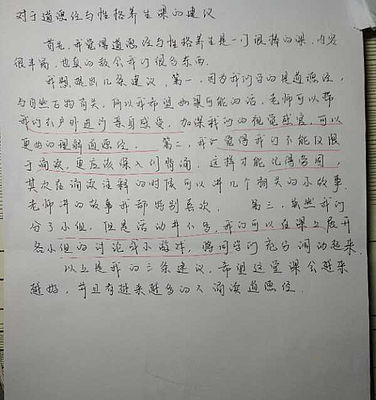 对于道德经与性格养生课的建议
首先,我觉得道德经与性格养生是一门很棒的课,内容
很丰富,也真的教会我们很多东西。
我想提出几条建议,第一,因为我们学的是道德经,
与自然万物有关,所以我希望如果可能的话,老师可以带
我们去户外进行亲身感受,加深我们的视觉感官,可以
更好的理解道德经。第二,我觉得我们不能仅限
于诵读,更应该深入们背诵,这样才能记得牢固,
其次在诵读注释的时候可以讲几个相关的小故事,
老师讲的故事我都特别喜欢。第三,虽然我们
分了小组,但是活动并不多,我们可以在课上展开
各小组的讨论或小游戏,将同学们充分调动起来。
以上是我的三条建议,希望这堂课会越来
越好,并且有越来越多的人诵读道德经。